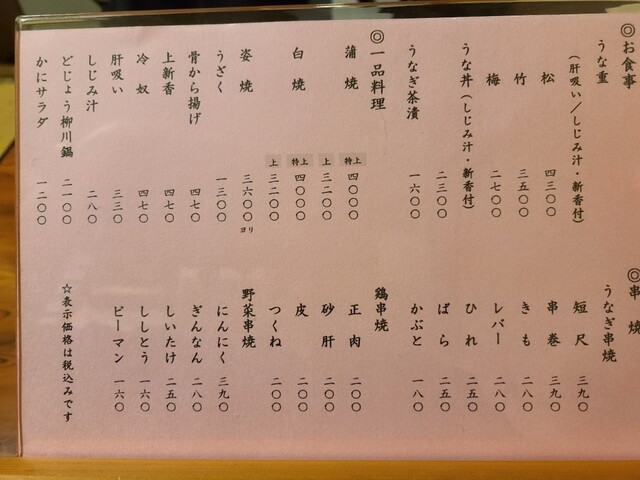 ◎お食事
うな重
（肝吸い／しじみ汁・新香付）
松 四三〇〇
竹 三五〇〇
梅 二七〇〇
うな丼（しじみ汁・新香付） 二三〇〇
うなぎ茶漬 一六〇〇
◎一品料理
蒲焼 特上 四〇〇〇
上 三二〇〇
白焼 特上 四〇〇〇
上 三二〇〇
姿焼 三六〇〇ヨリ
うざく 一三〇〇
骨から揚げ 四七〇
上新香 四七〇
冷奴 四七〇
肝吸い 三三〇
しじみ汁 二八〇
どじょう柳川鍋 二一〇〇
かにサラダ 一二〇〇
◎串焼
うなぎ串焼
短尺 三九〇
串巻 三九〇
きも 二八〇
レバー 二八〇
ひれ 二五〇
ばら 二五〇
かぶと 一八〇
鶏串焼
正肉 二〇〇
砂肝 二〇〇
皮 二〇〇
つくね 二〇〇
野菜串焼
にんにく 三九〇
ぎんなん 二八〇
しいたけ 二五〇
ししとう 一六〇
ピーマン 一六〇
☆表示価格は税込みです